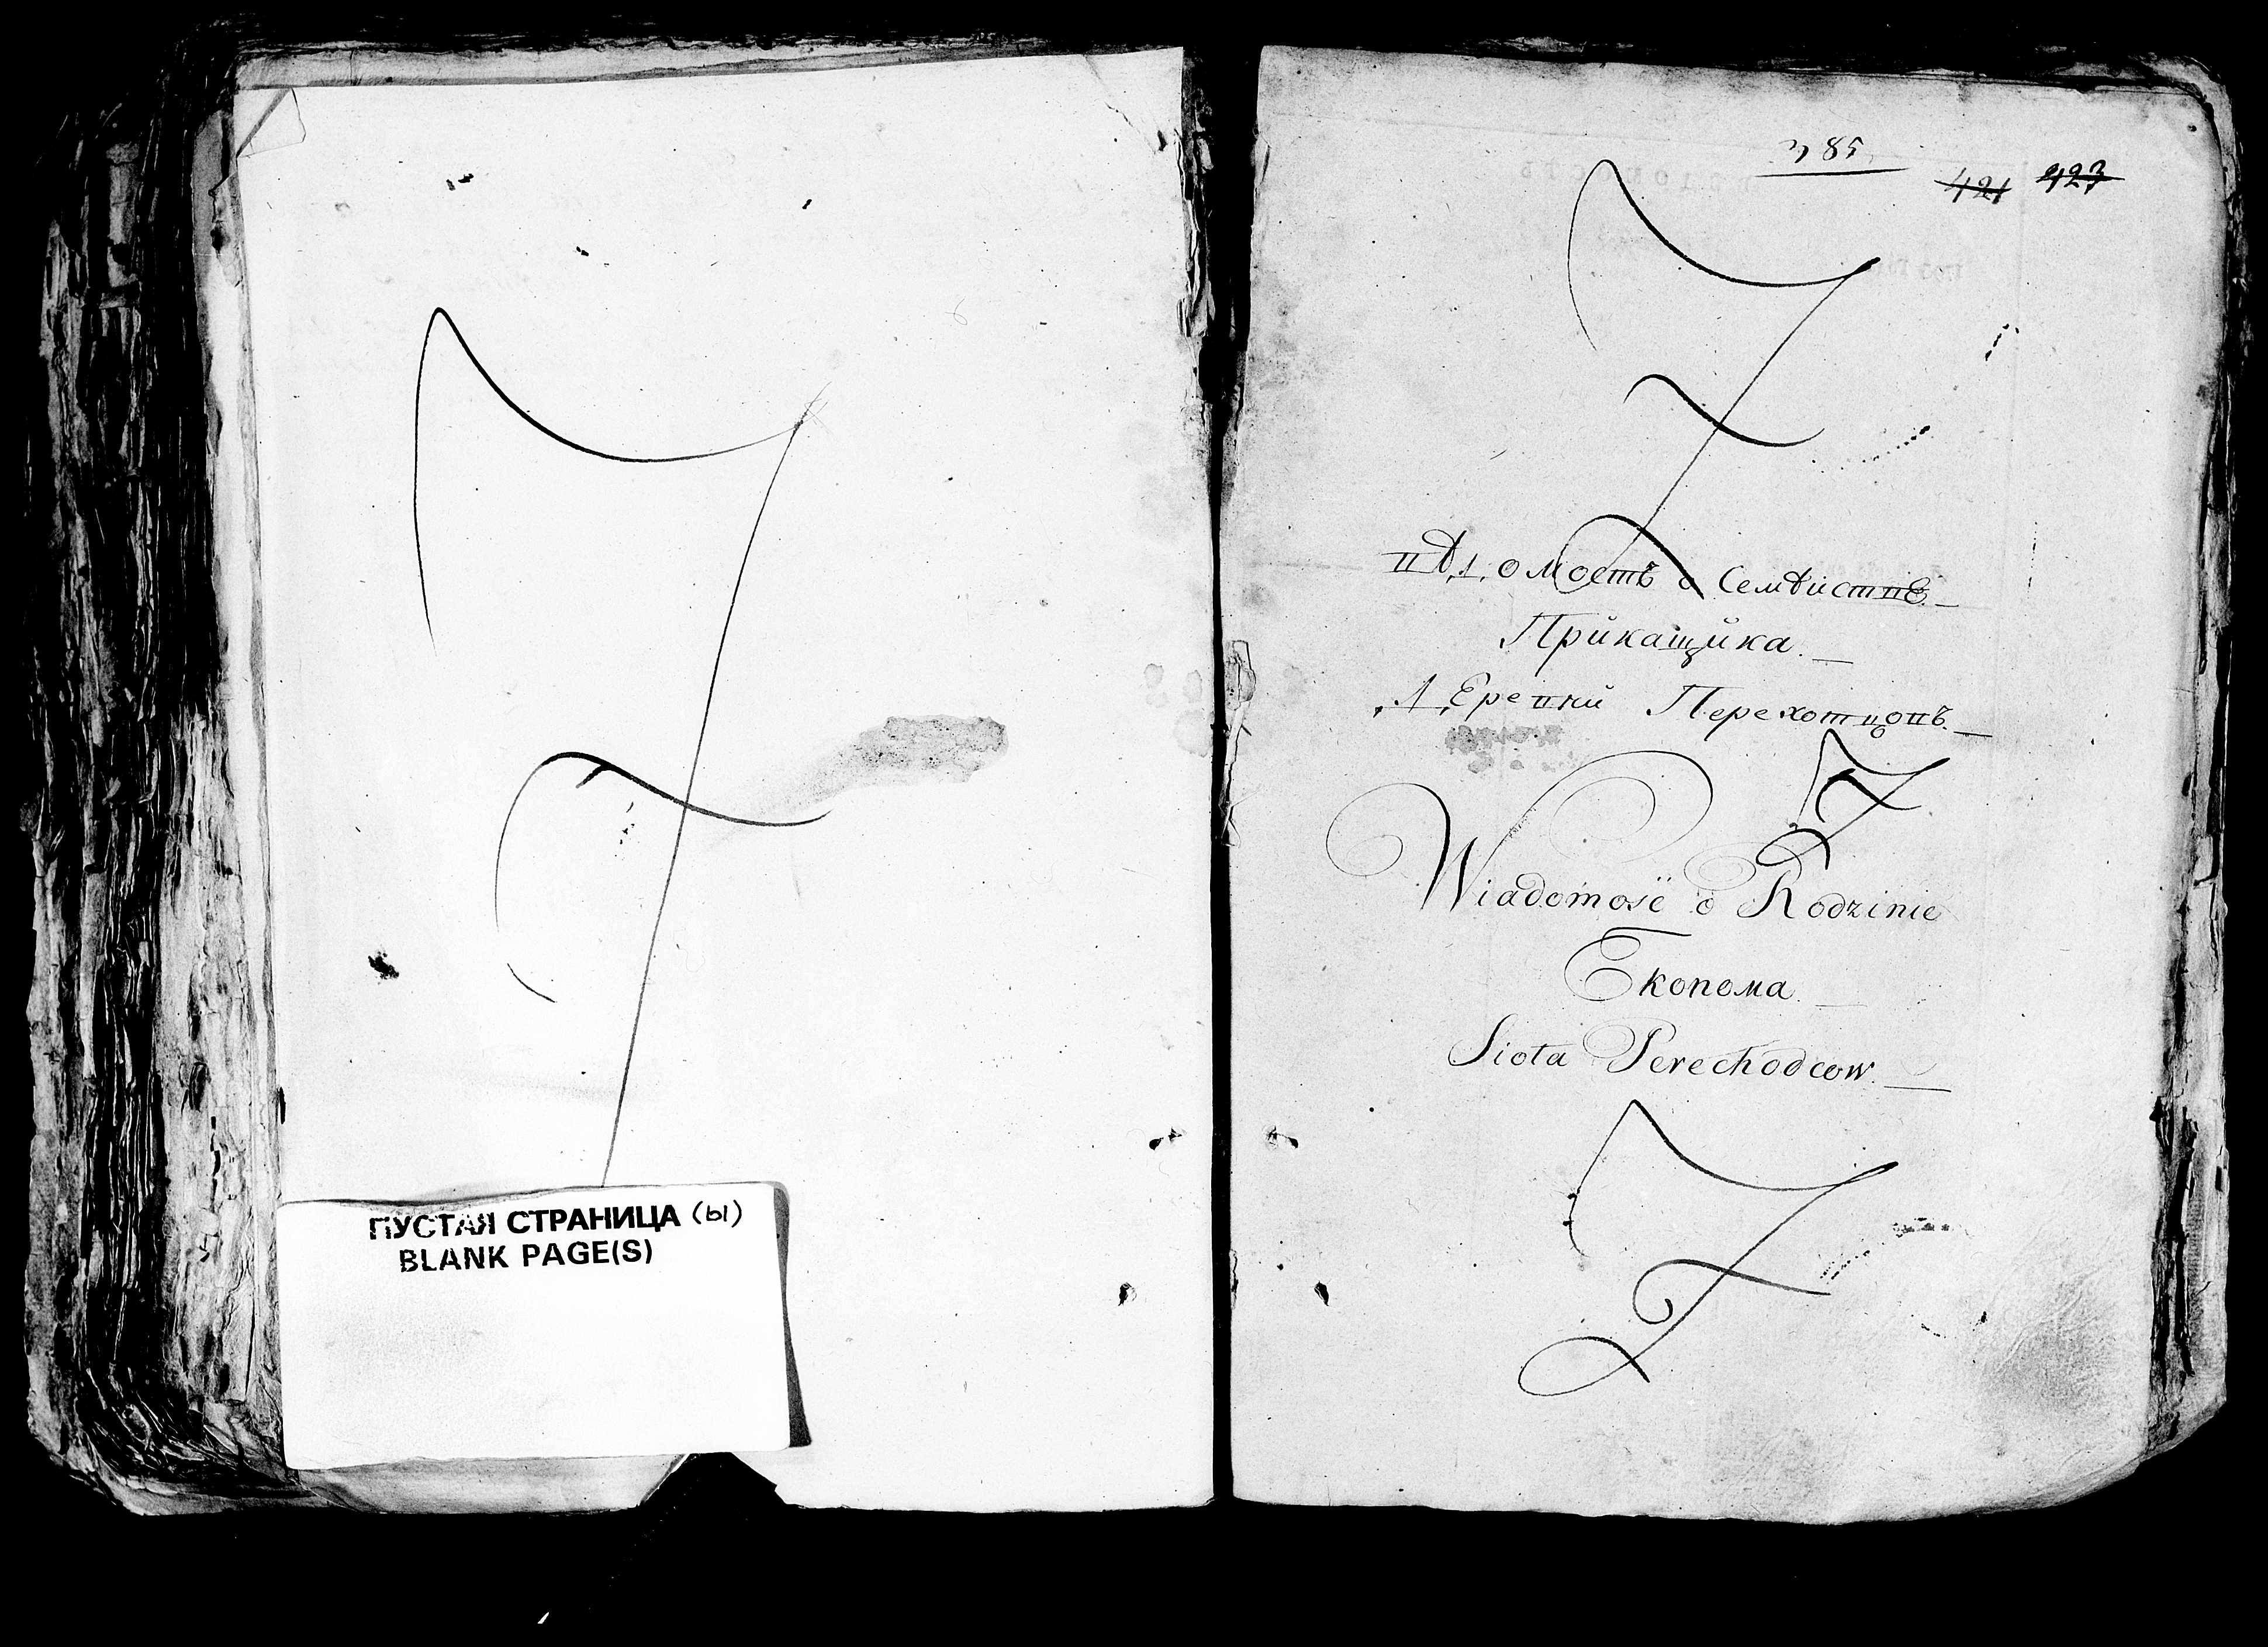 ПУСТАЯ СТРАНИЦА (ы)
BLANK PAGE(S)
385
421 423
Вѣдомость о Семѣиствѣ
Прикащика.
Деревни Переходцовъ.
Wiadomość o Rodzinie
Ekonoma
Siola Perechodcow.